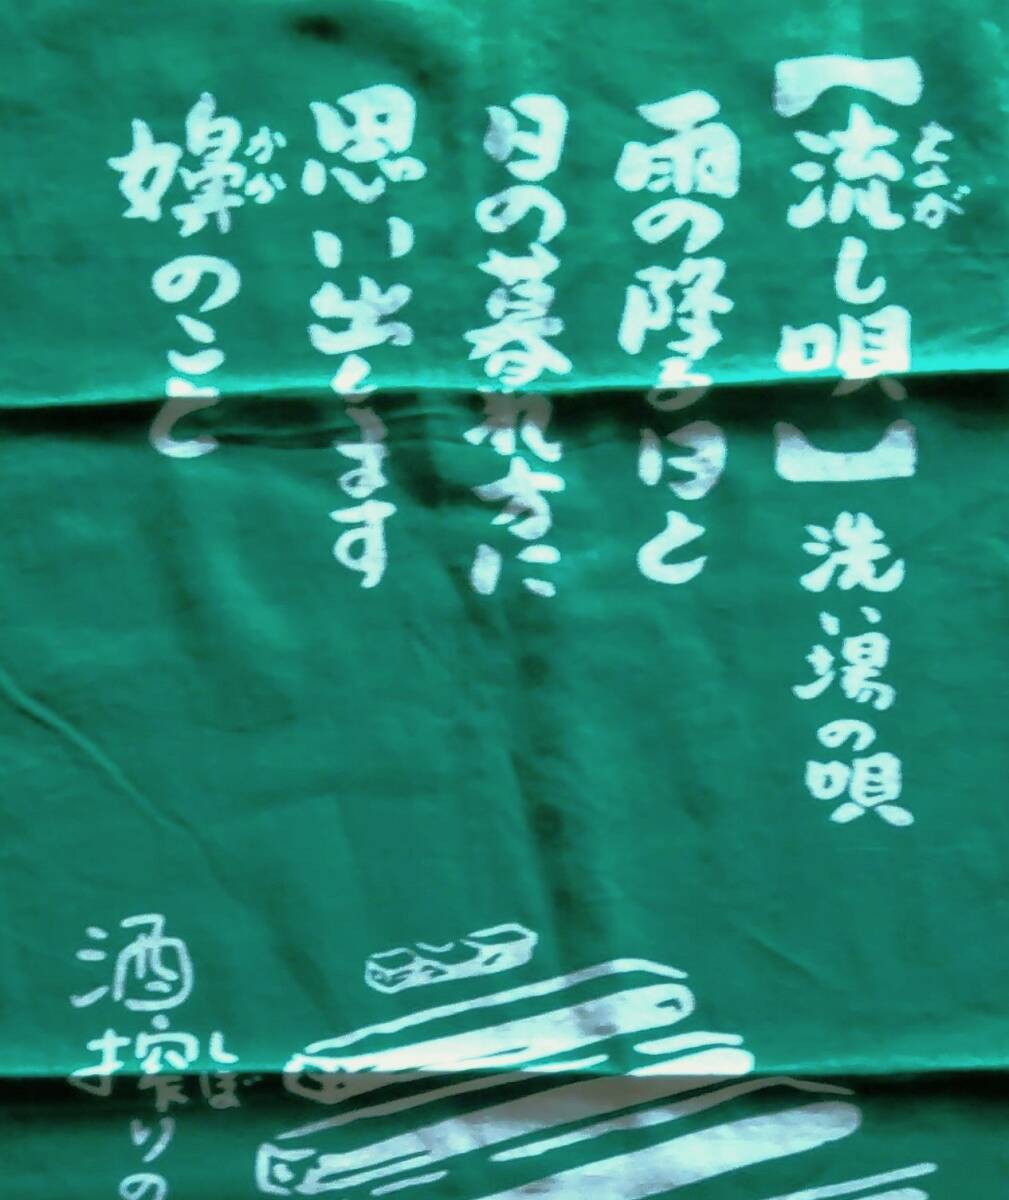 【流し唄】洗い場の唄
雨の降る日と
日の暮れ方に
思い出します
嬶のこと
かか
酒搾りの
しぼ